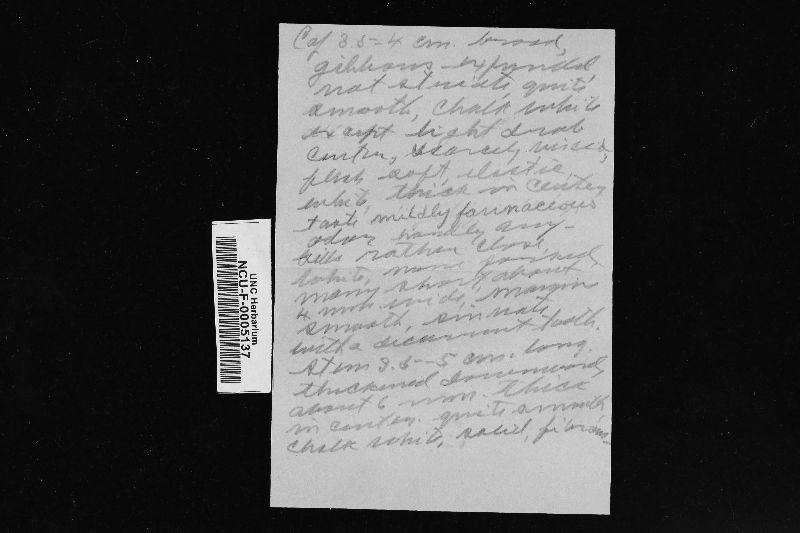 Cap 3.5-4 cm. broad,
gibbous-expanded
not striate, quite
smooth, chalk white
except light drab
center, scarcely viscid,
flesh soft, elastic,
white, thick in center
taste mildly farinaceous
odor hardly any-
Gills rather close
white, none forked,
many short about
4 mm wide, margin
smooth, sinuate
with a decurrent tooth.
Stem 3.5-5 cm. long.
thickened downward
about 6 mm. thick
in center. quite smooth
chalk white, solid, fibrous-
UNC Herbarium
NCU-F-0005137